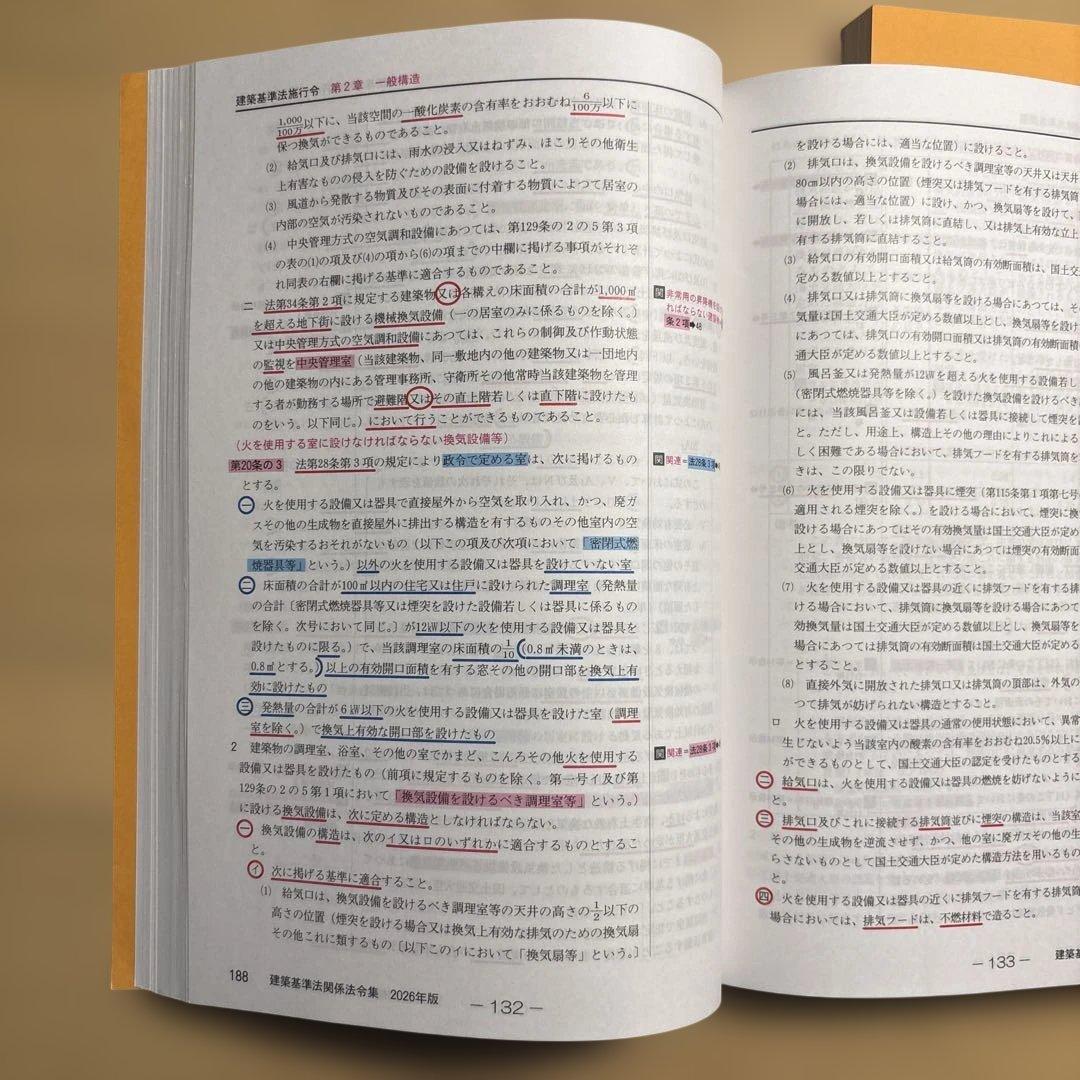 建築基準法施行令 第2章 一般構造
1,000/100万以下に、当該空間の一酸化炭素の含有率をおおむね6/100万以下に
保つ換気ができるものであること。
⑵ 給気口及び排気口には、雨水の浸入又はねずみ、ほこりその他衛生
上有害なものの侵入を防ぐための設備を設けること。
⑶ 風道から発散する物質及びその表面に付着する物質によつて居室の
内部の空気が汚染されないものであること。
⑷ 中央管理方式の空気調和設備にあつては、第129条の2の5第3項
の表の⑴の項及び⑷の項から⑹の項までの中欄に掲げる事項がそれぞ
れ同表の右欄に掲げる基準に適合するものであること。
二 法第34条第2項に規定する建築物又は各構えの床面積の合計が1,000㎡
を超える地下街に設ける機械換気設備(一の居室のみに係るものを除く。)
又は中央管理方式の空気調和設備にあつては、これらの制御及び作動状態
の監視を中央管理室(当該建築物、同一敷地内の他の建築物又は一団地内
の他の建築物の内にある管理事務所、守衛所その他常時当該建築物を管理
する者が勤務する場所で避難階又はその直上階若しくは直下階に設けたも
のをいう。以下同じ。)において行うことができるものであること。
(火を使用する室に設けなければならない換気設備等)
第20条の3 法第28条第3項の規定により政令で定める室は、次に掲げるもの
とする。
一 火を使用する設備又は器具で直接屋外から空気を取り入れ、かつ、廃ガ
スその他の生成物を直接屋外に排出する構造を有するものその他室内の空
気を汚染するおそれがないもの(以下この項及び次項において「密閉式燃
焼器具等」という。)以外の火を使用する設備又は器具を設けていない室
二 床面積の合計が100㎡以内の住宅又は住戸に設けられた調理室(発熱量
の合計〔密閉式燃焼器具等又は煙突を設けた設備若しくは器具に係るもの
を除く。次号において同じ。〕が12kW以下の火を使用する設備又は器具を
設けたものに限る。)で、当該調理室の床面積の1/10(0.8㎡未満のときは、
0.8㎡とする。)以上の有効開口面積を有する窓その他の開口部を換気上有
効に設けたもの
三 発熱量の合計が6kW以下の火を使用する設備又は器具を設けた室(調理
室を除く。)で換気上有効な開口部を設けたもの
2 建築物の調理室、浴室、その他の室でかまど、こんろその他火を使用する
設備又は器具を設けたもの(前項に規定するものを除く。第一号イ及び第
129条の2の5第1項において「換気設備を設けるべき調理室等」という。)
に設ける換気設備は、次に定める構造としなければならない。
一 換気設備の構造は、次のイ又はロのいずれかに適合するものとするこ
と。
イ 次に掲げる基準に適合すること。
⑴ 給気口は、換気設備を設けるべき調理室等の天井の高さの1/2以下の
高さの位置(煙突を設ける場合又は換気上有効な排気のための換気扇
その他これに類するもの〔以下このイにおいて「換気扇等」という。〕
関 非常用の昇降機を
ればならない
条2項➡48
関 関連=法28条3項
関 関連=法28条3項
188 建築基準法関係法令集 2026年版
−132−
を設ける場合には、適当な位置)に設けること。
⑵ 排気口は、換気設備を設けるべき調理室等の天井又は天井
80cm以内の高さの位置(煙突又は排気フードを有する排気筒
場合には、適当な位置)に設け、かつ、換気扇等を設けて、
に開放し、若しくは排気筒に直結し、又は排気上有効な立上
有する排気筒に直結すること。
⑶ 給気口の有効開口面積又は給気筒の有効断面積は、国土交
定める数値以上とすること。
⑷ 排気口又は排気筒に換気扇等を設ける場合にあつては、そ
気量は国土交通大臣が定める数値以上とし、換気扇等を設け
にあつては、排気口の有効開口面積又は排気筒の有効断面
通大臣が定める数値以上とすること。
⑸ 風呂釜又は発熱量が12kWを超える火を使用する設備若し
(密閉式燃焼器具等を除く。)を設けた換気設備を設けるべき
には、当該風呂釜又は設備若しくは器具に接続して煙突を
と。ただし、用途上、構造上その他の理由によりこれによる
しく困難である場合において、排気フードを有する排気筒
きは、この限りでない。
⑹ 火を使用する設備又は器具に煙突(第115条第1項第七号
適用される煙突を除く。)を設ける場合において、煙突に換
設ける場合にあつてはその有効換気量は国土交通大臣が定め
上とし、換気扇等を設けない場合にあつては煙突の有効断面
交通大臣が定める数値以上とすること。
⑺ 火を使用する設備又は器具の近くに排気フードを有する排
ける場合において、排気筒に換気扇等を設ける場合にあつて
効換気量は国土交通大臣が定める数値以上とし、換気扇等を
場合にあつては排気筒の有効断面積は国土交通大臣が定める
とすること。
⑻ 直接外気に開放された排気口又は排気筒の頂部は、外気の
つて排気が妨げられない構造とすること。
ロ 火を使用する設備又は器具の通常の使用状態において、異常
生じないよう当該室内の酸素の含有率をおおむね20.5%以上に
ができるものとして、国土交通大臣の認定を受けたものとする
二 給気口は、火を使用する設備又は器具の燃焼を妨げないように
と。
三 排気口及びこれに接続する排気筒並びに煙突の構造は、当該室
その他の生成物を逆流させず、かつ、他の室に廃ガスその他の生
らさないものとして国土交通大臣が定めた構造方法を用いるもの
と。
四 火を使用する設備又は器具の近くに排気フードを有する排気筒
場合においては、排気フードは、不燃材料で造ること。
−133−
建築基